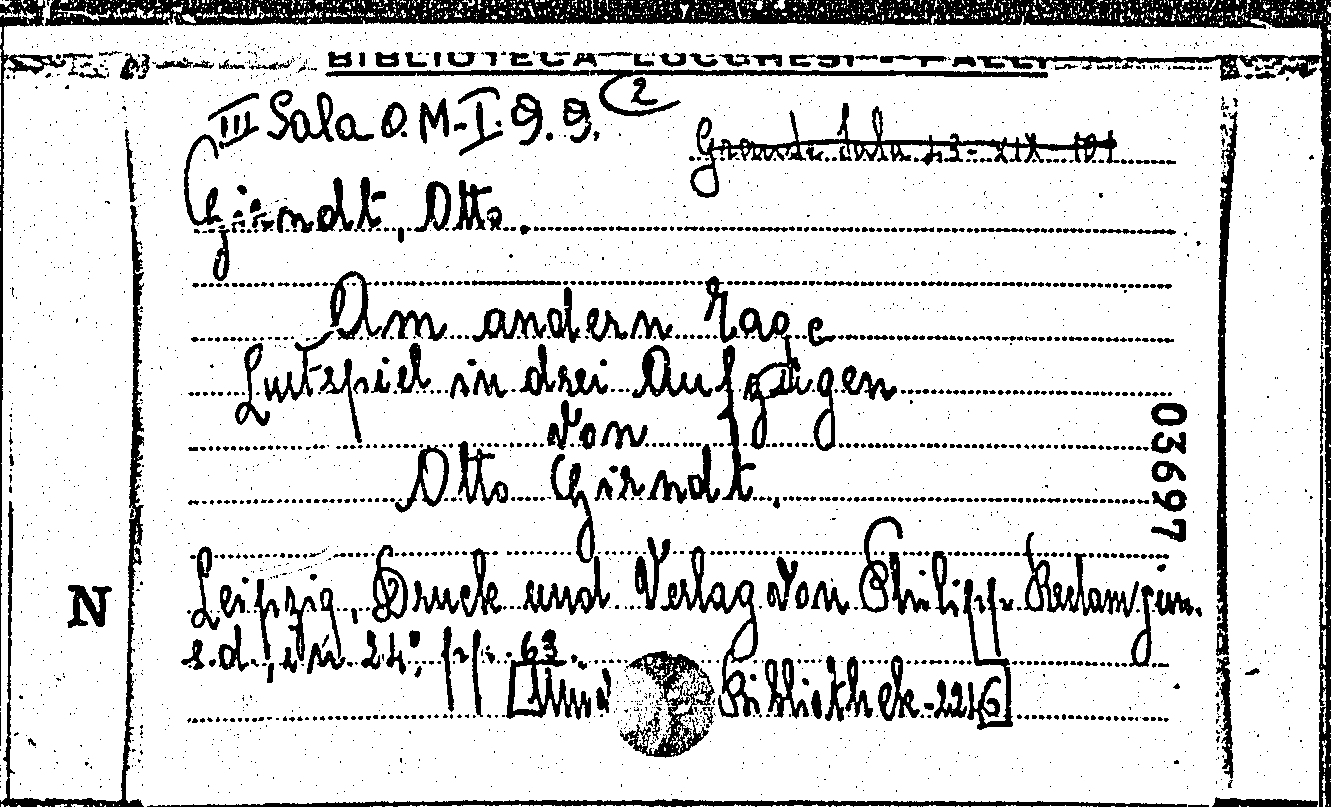 BIBLIOTECA LUCCHESI - PALLI
III Sala O. M-I. 9. 9. (2)
Grande Sala 43-XIX 101
Girndt, Otto.
Am andern Tage
Lustspiel in drei Aufzügen
von
Otto Girndt.
Leipzig, Druck und Verlag von Philipp Reclam jun.
s.d., in 24°, pp. 63.
Bibliothek-2246]
03697
N